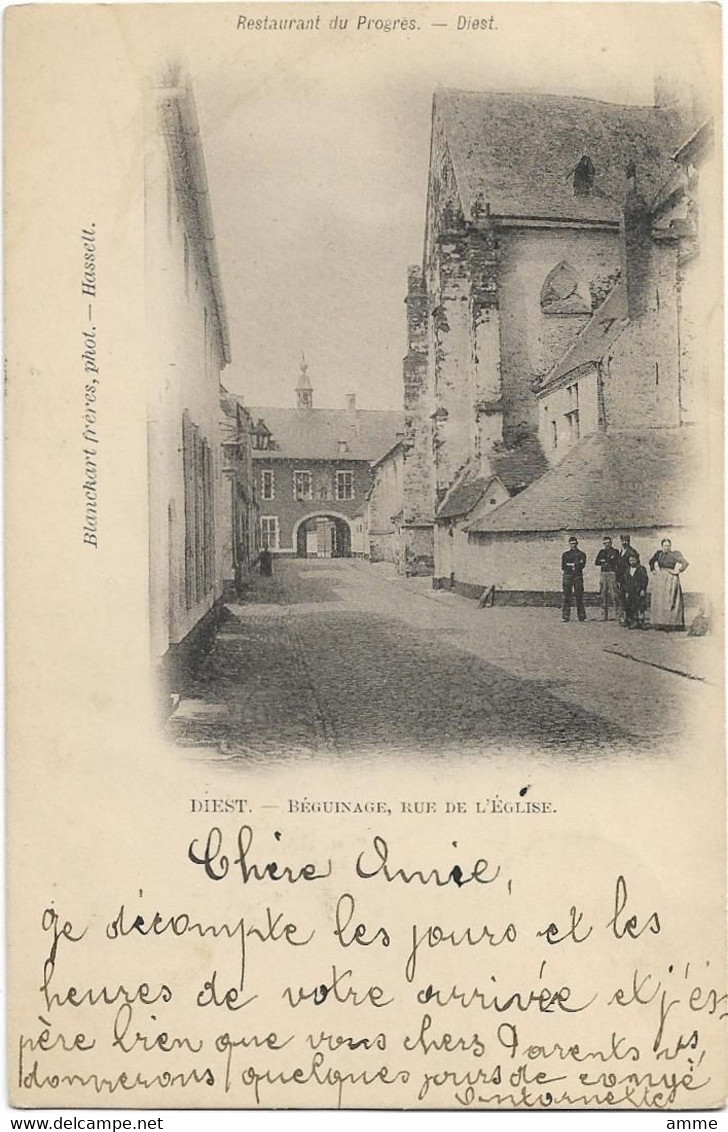 Restaurant du Progrès. — Diest.
Blanckart frères, phot. — Hasselt.
DIEST. — BÉGUINAGE, RUE DE L'ÉGLISE.
Chère Amie,
Je décompte les jours et les
heures de votre arrivée et j'és
père bien que vous chers Parents vs
donnerons quelques jours de congé
Antoinette
www.delcampe.net
amme